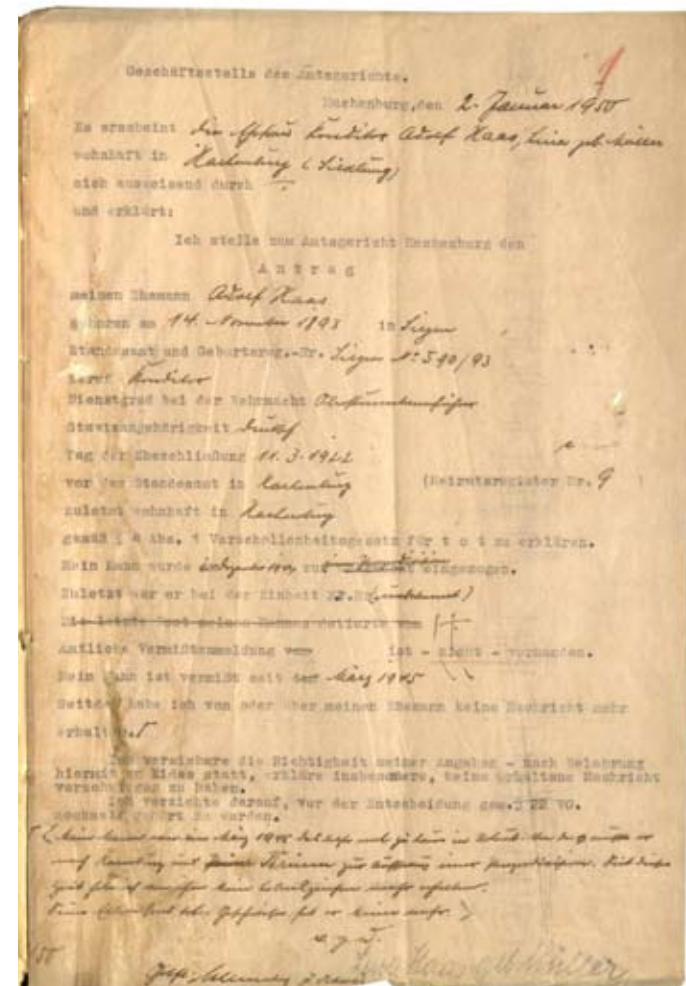 1
Geschäftsstelle des Amtsgerichts.
Hachenburg, den 2. Januar 1950
Es erscheint die Ehefrau Konditor Adolf Haas, Lina geb. Müller
wohnhaft in Hachenburg (Siedlung)
sich ausweisend durch —
und erklärt:
Ich stelle zum Amtsgericht Hachenburg den
Antrag
meinen Ehemann Adolf Haas
geboren am 14. November 1893 in Siegen
Standesamt und Geburtsreg.-Nr. Siegen Nr 590/93
Beruf Konditor
Dienstgrad bei der Wehrmacht Obersturmbannführer
Staatsangehörigkeit deutsch
Tag der Eheschließung 11.3.1922
vor dem Standesamt in Hachenburg (Heiratsregister Nr. 9 )
zuletzt wohnhaft in Hachenburg
gemäß § 4 Abs. 1 Verschollenheitsgesetz für tot zu erklären.
Mein Mann wurde zur eingezogen.
Zuletzt war er bei der Einheit (unbekannt)
Die letzte Post meines Mannes datierte vom
Amtliche Vermißtenmeldung vom ist - nicht - vorhanden.
Mein Mann ist vermißt seit dem März 1945
Seitdem habe ich von oder über meinen Ehemann keine Nachricht mehr
erhalten.
Ich versichere die Richtigkeit meiner Angaben - nach Belehrung
hiermit an Eides statt, erkläre insbesondere, keine erhaltene Nachricht
verschwiegen zu haben.
Ich verzichte darauf, vor der Entscheidung gem. § 22 VO.
nochmals gehört zu werden.
Mein Mann war im März 1945 das letzte mal zu Haus in Urlaub. er
nach Hamburg und zur einer Seit dieser
Zeit habe ich von ihm kein Lebenszeichen mehr erhalten.
hat er keine mehr.
v. g. u.
Lina Haas geb. Müller